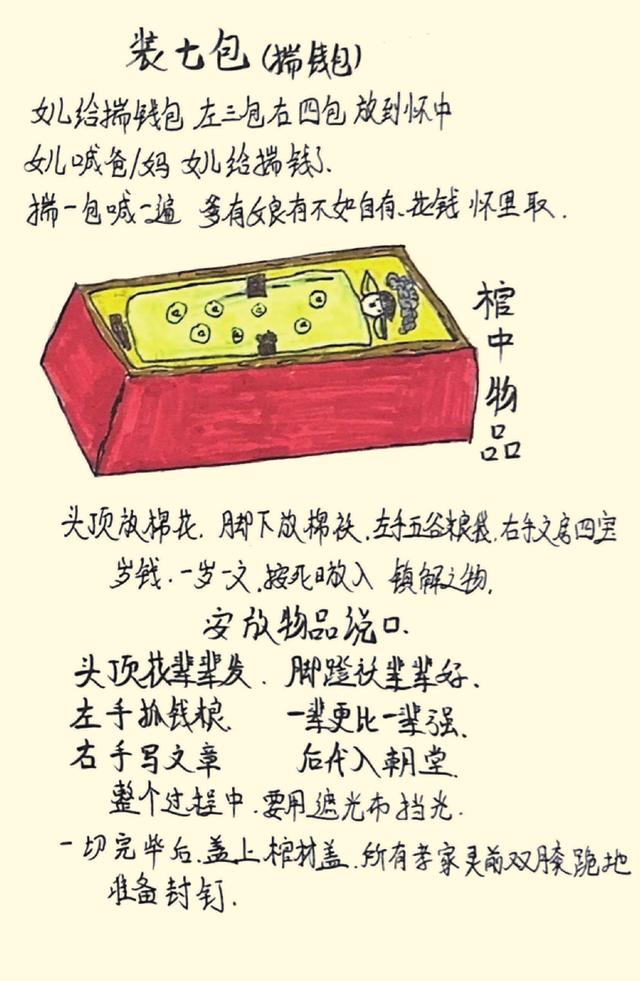 装七包(揣钱包)
女儿给揣钱包 左三包右四包 放到怀中
女儿喊爸/妈 女儿给揣钱了.
揣一包喊一遍 爹有娘有不如自有.花钱 怀里取.
棺中物品
头顶放棉花. 脚下放棉袄.左手五谷粮袋.右手文房四宝
岁钱.一岁一文.按死日放入 镇解之物.
安放物品说口.
头顶花辈辈发. 脚蹬袄辈辈好.
左手抓钱粮. 一辈更比一辈强.
右手写文章 后代入朝堂.
整个过程中.要用遮光布挡光.
一切完毕后.盖上棺材盖.所有孝家灵前双膝跪地
准备封钉.